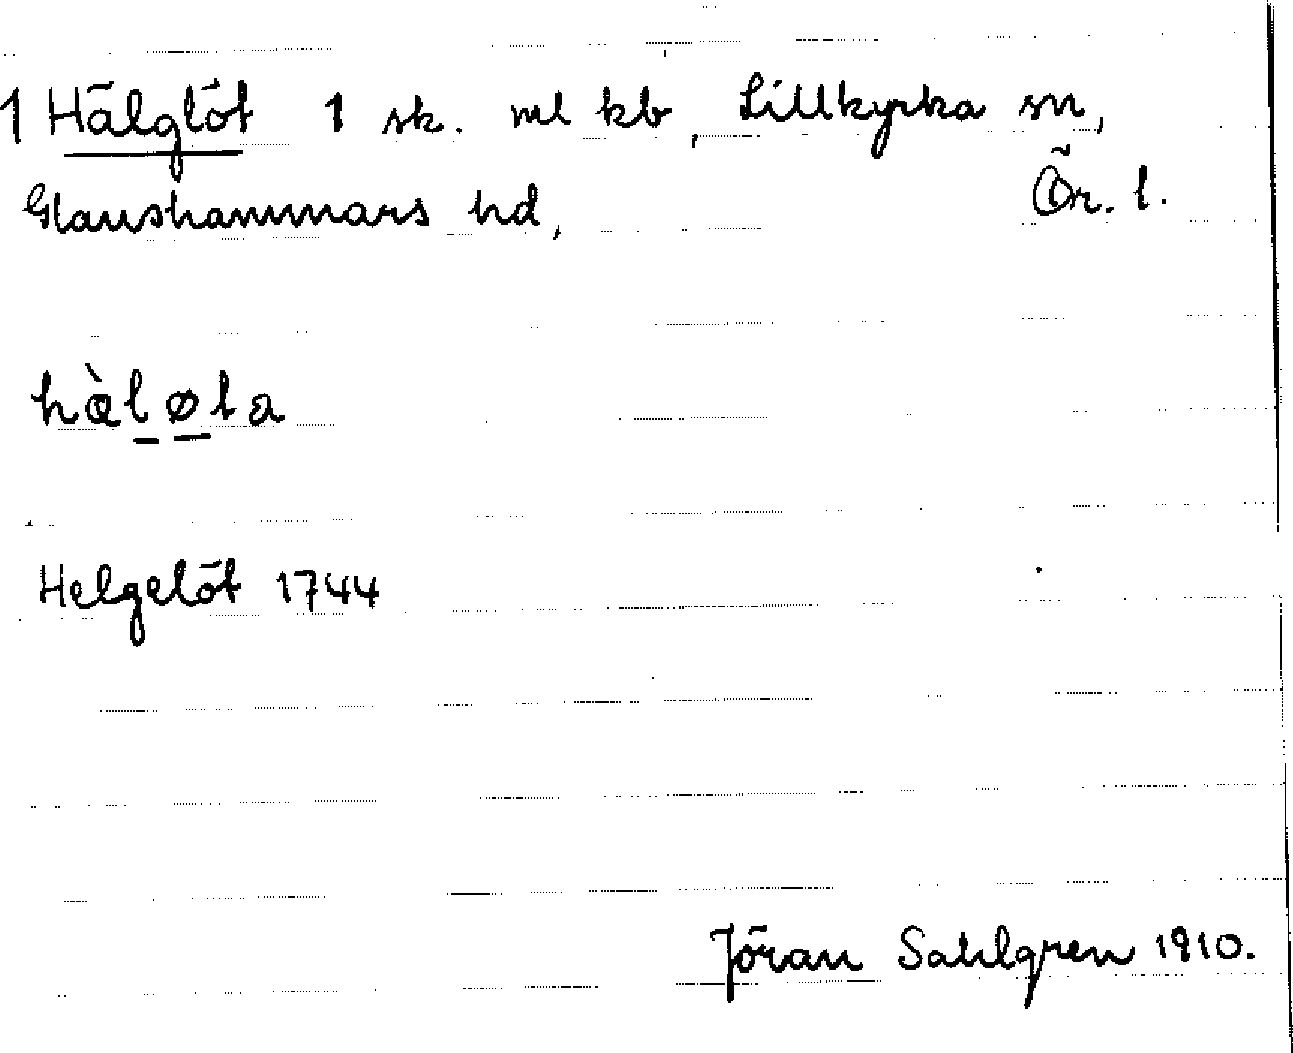 1 Hälglöt 1 sk. ml kb, Lillkyrka sn,
Glanshammars hd, Ör. l.
hæ̀løta
Helgelöt 1744
Jöran Sahlgren 1910.